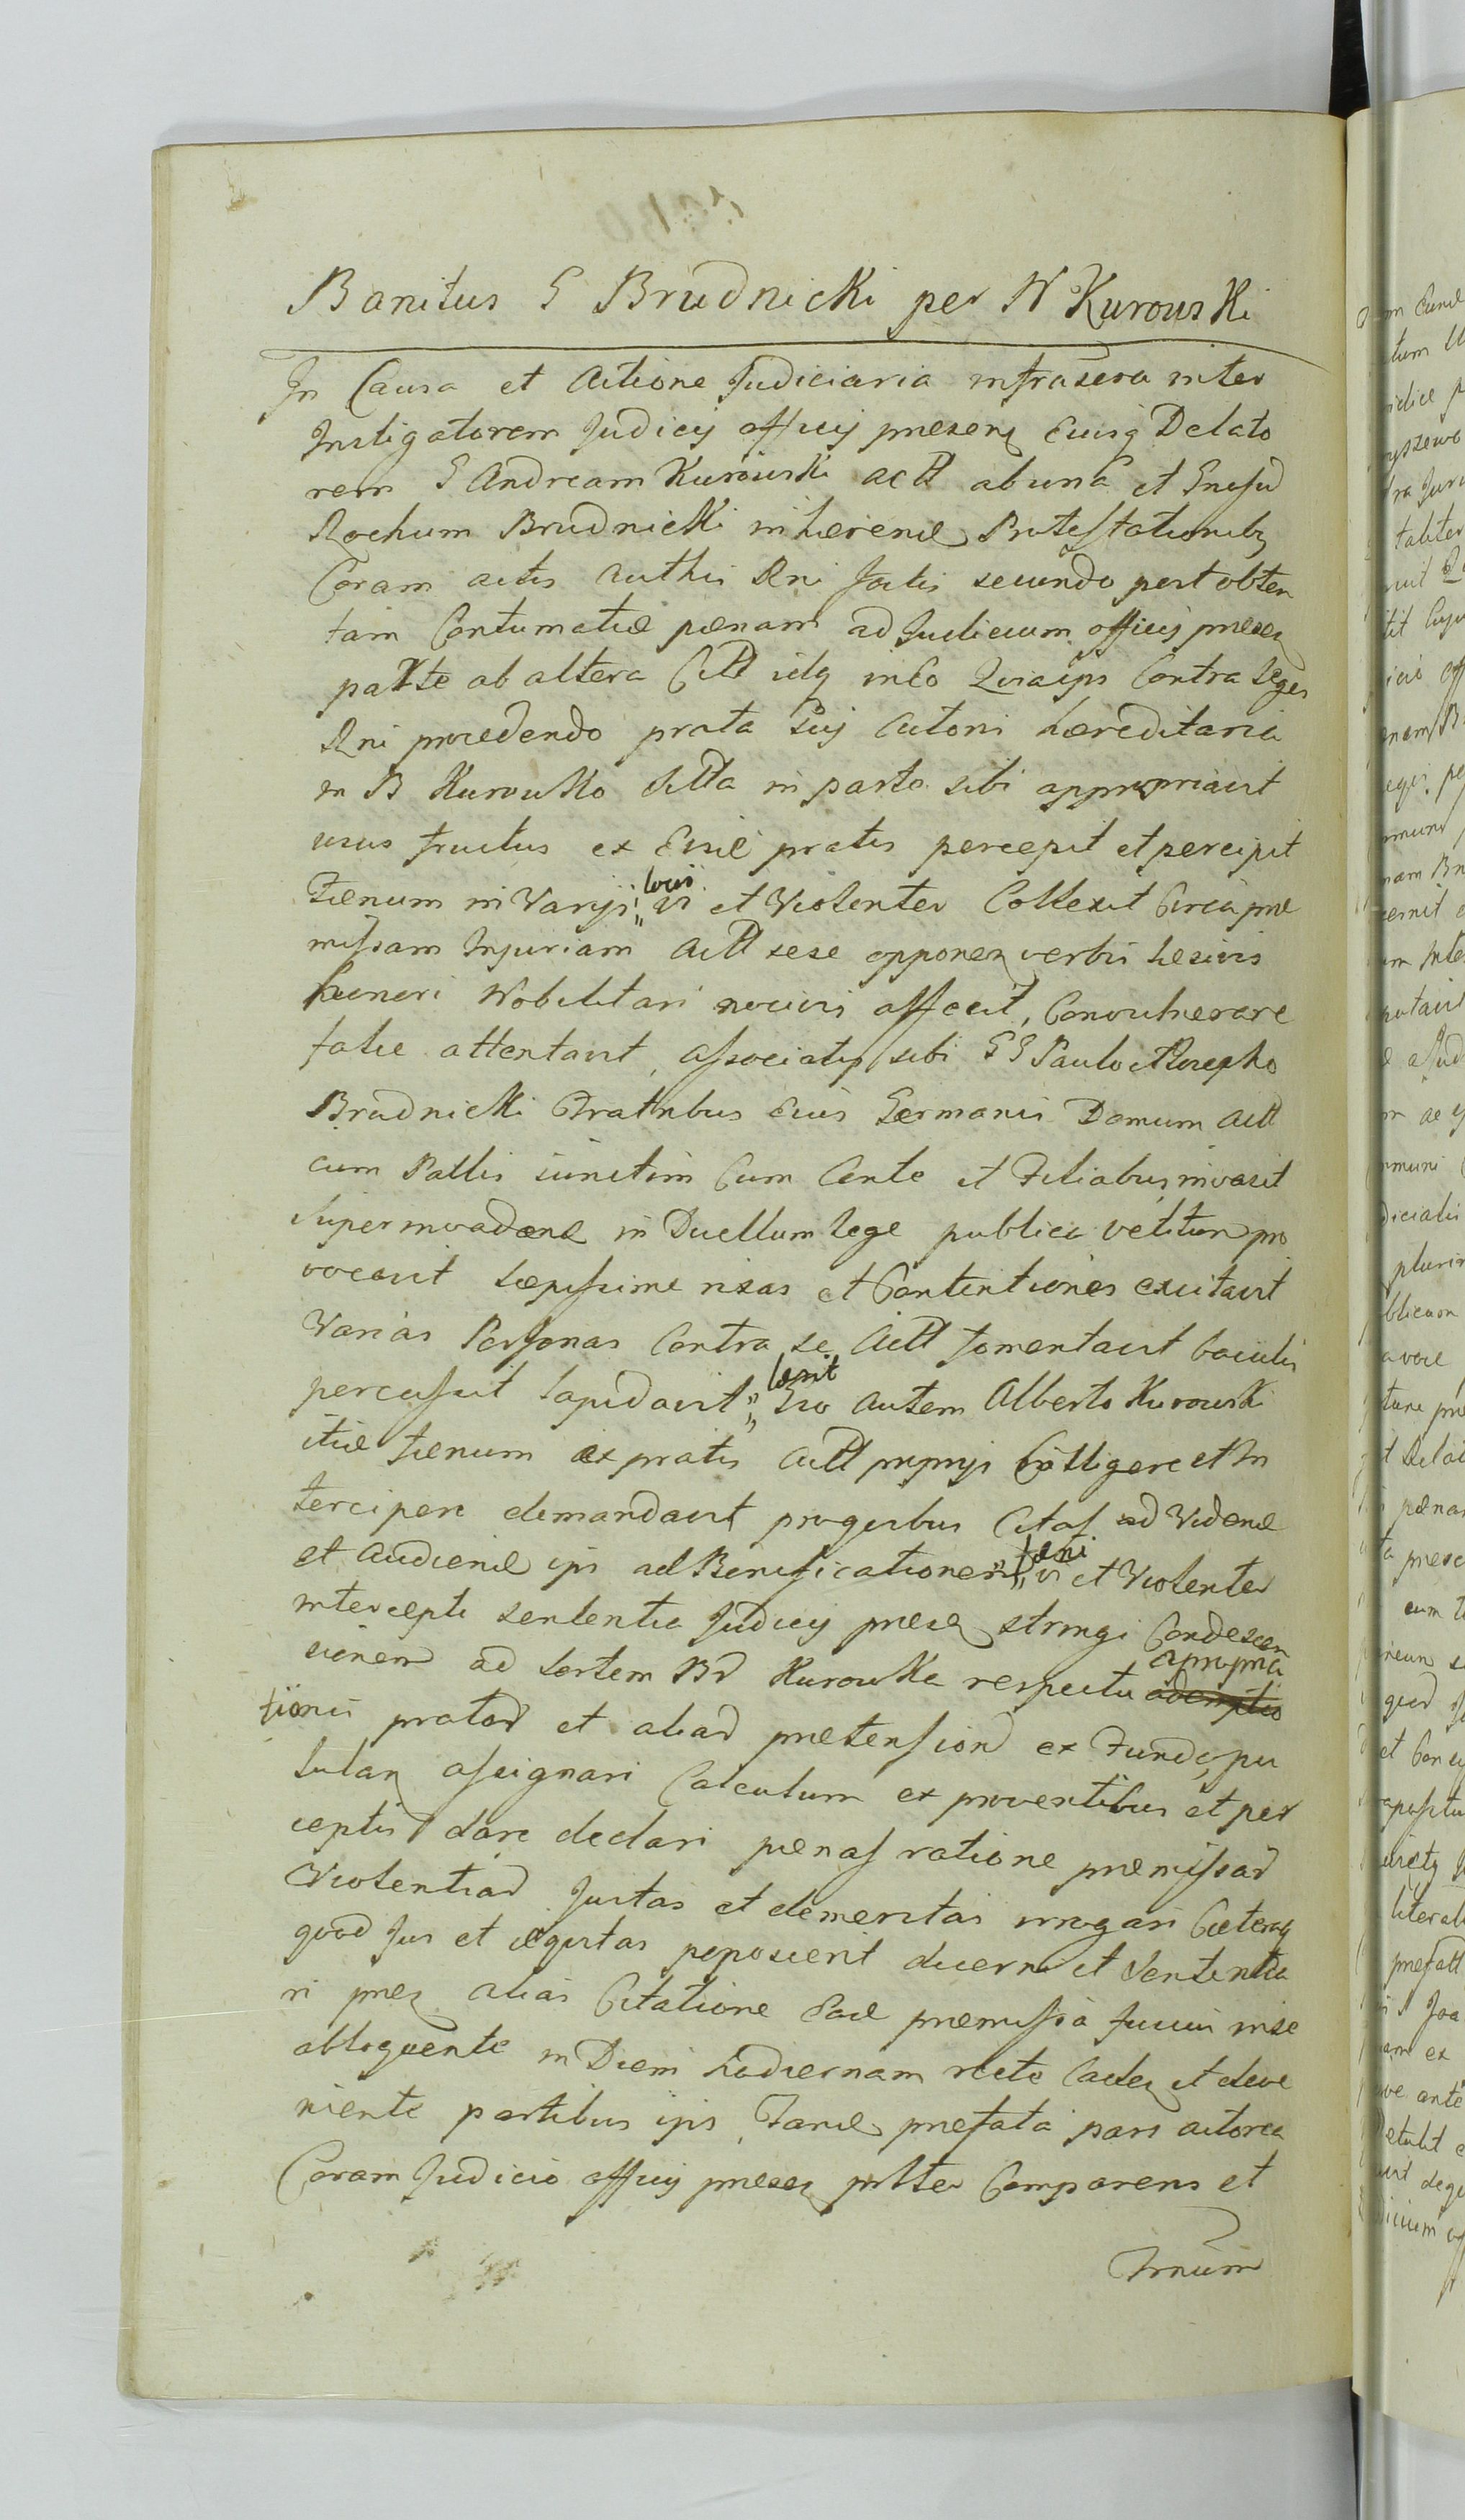 Banitus G Brudnicki per N Kurowski
In Causa et Actione Judiciaria infrascra inter
Instigatorem Judicij officij præsenq Eiusq Delato
rem G Andream Kurowski actt ab una et Gnesud
Rochum Brudnicki inhærend Protestationibq
Coram actis authcis Rni factis secundo post obten
tam Contumatiæ pænam ad Judicium officij præsen
parte ab altera Citt idq in eo Quia ips Contra Leges
Rni procedendo prata sui Actoris hæreditaria
in B Kurowsko sitta in parte sibi appropriavit
usus fructus ex Eisd pratis percepit et percipit
Fænum in Varijs locis vi et Violenter Collexit Circa præ
missam Injuriam Actt sese opponen verbis læsivis
honori Nobilitari nocivis affecit, Convulnerare
talie attentavit, associatis sibi GG Paulo et Josepho
Brudnicki Fratribus suis Germanis Domum Actt
cum Pallis iunctim Cum Cente et Filiabus invasit
superinvadend in Duellum lege publica vetitum pro
vocavit sæpissime rixas et Contentiones excitavit
Varias Personas Contra se Actt fomentavit baculis
percussit lapidavit læsit Gso autem Alberto Kurowski
itid fænum ex pratis Actt proprijs Colligere et In
tercipere demandavit pro quibus Citat ad Vidend
et Audiend ips ad Bonificationem fæni vi et Violenter
intercepti sententia Judicij præsen stringi Condescen
sionem ad sortem Bd Kurowska respectu apropria
tionis prator et aliar prætension ex Fundo pu
lulan assignari Calculum ex proventibus et per
ceptis dare declari pænas ratione præmissar
Violentiar Justas et demeritas irrogari Cæteraq
quod Jus et æquitas poposcerit decerni et Sententia
ri prnq alias Citatione Eod præmissa fusius in se
obloquente in Diem hodiernam recte Caden et deve
niente partibus ips, Tand præfata pars actorea
Coram Judicio officij præsen pltter Comparens et
Trnum